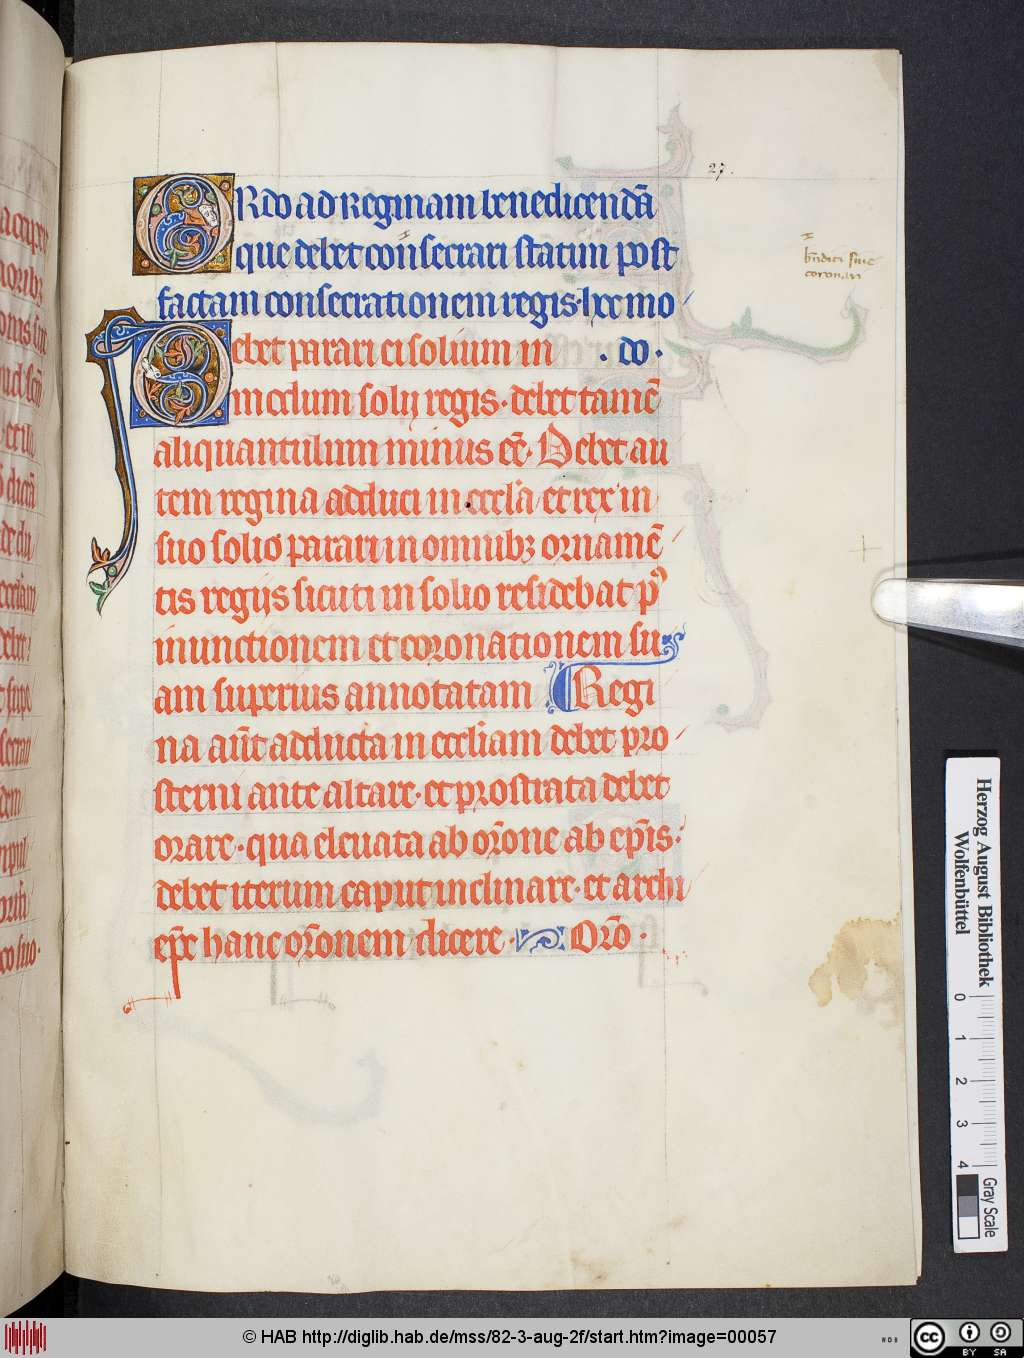 27.
ORdo ad Reginam benedicendā
que debet consecrari statim post
factam consecrationem regis. hoc mo
Debet parari ei solium in . do .
modum solij regis. debet tamē
aliquantulum minus eē. Debet au
tem regina adduci in eccl'a et rex in
suo solio parari in omnibꝫ ornamē
tis regijs sicuti in solio residebat pꝰ
inunctionem et coronationem su
am superius annotatam. Regi
na aūt adducta in eccliam debet pro
sterni ante altare. et prostrata debet
orare. qua eleuata ab or̄one ab ep̄is.
debet iterum caput inclinare. et archi
ep̄c hanc or̄onem dicere. Or̄o.
bn̄dici siue
coronari
Herzog August Bibliothek
Wolfenbüttel
0 1 2 3 4
Gray Scale
© HAB http://diglib.hab.de/mss/82-3-aug-2f/start.htm?image=00057
cc BY SA